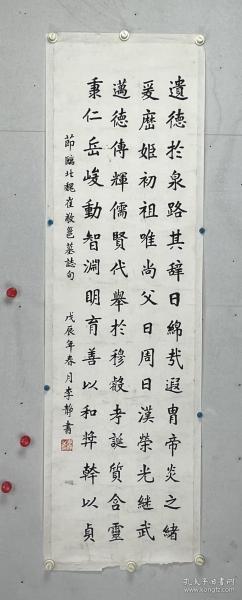 遺德於泉路其辞曰綿哉遐胄帝炎之緒
爰歷姬初祖唯尚父曰周曰漢榮光继武
邁德傳輝儒賢代舉於穆毅考誕質含靈
秉仁岳峻動智渊明育善以和弉幹以貞
節臨北魏崔敬邕墓誌句
戊辰年春月李静書
孔夫子旧书网